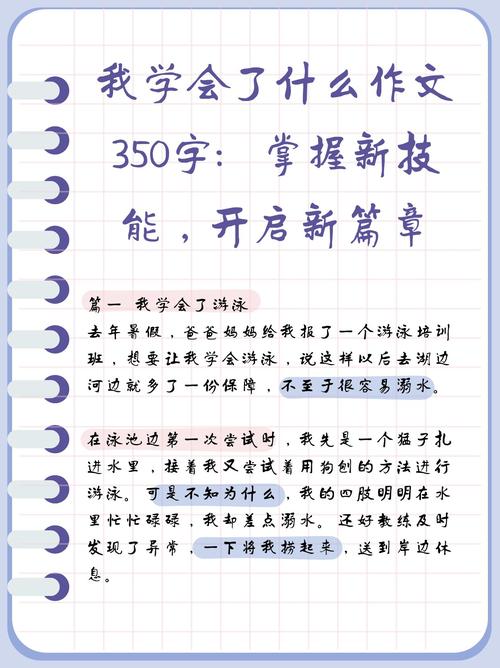 我学会了什么作文
350字：掌握新技
能，开启新篇章
篇一 我学会了游泳
去年暑假，爸爸妈妈给我报了一个游泳培训
班，想要让我学会游泳，说这样以后去湖边
河边就多了一份保障，不至于很容易溺水。
在泳池边第一次尝试时，我先是一个猛子扎
进水里，接着我又尝试着用狗刨的方法进行
游泳。可是不知为什么，我的四肢明明在水
里忙忙碌碌，我却差点溺水。还好教练及时
发现了异常，一下将我捞起来，送到岸边休
息。